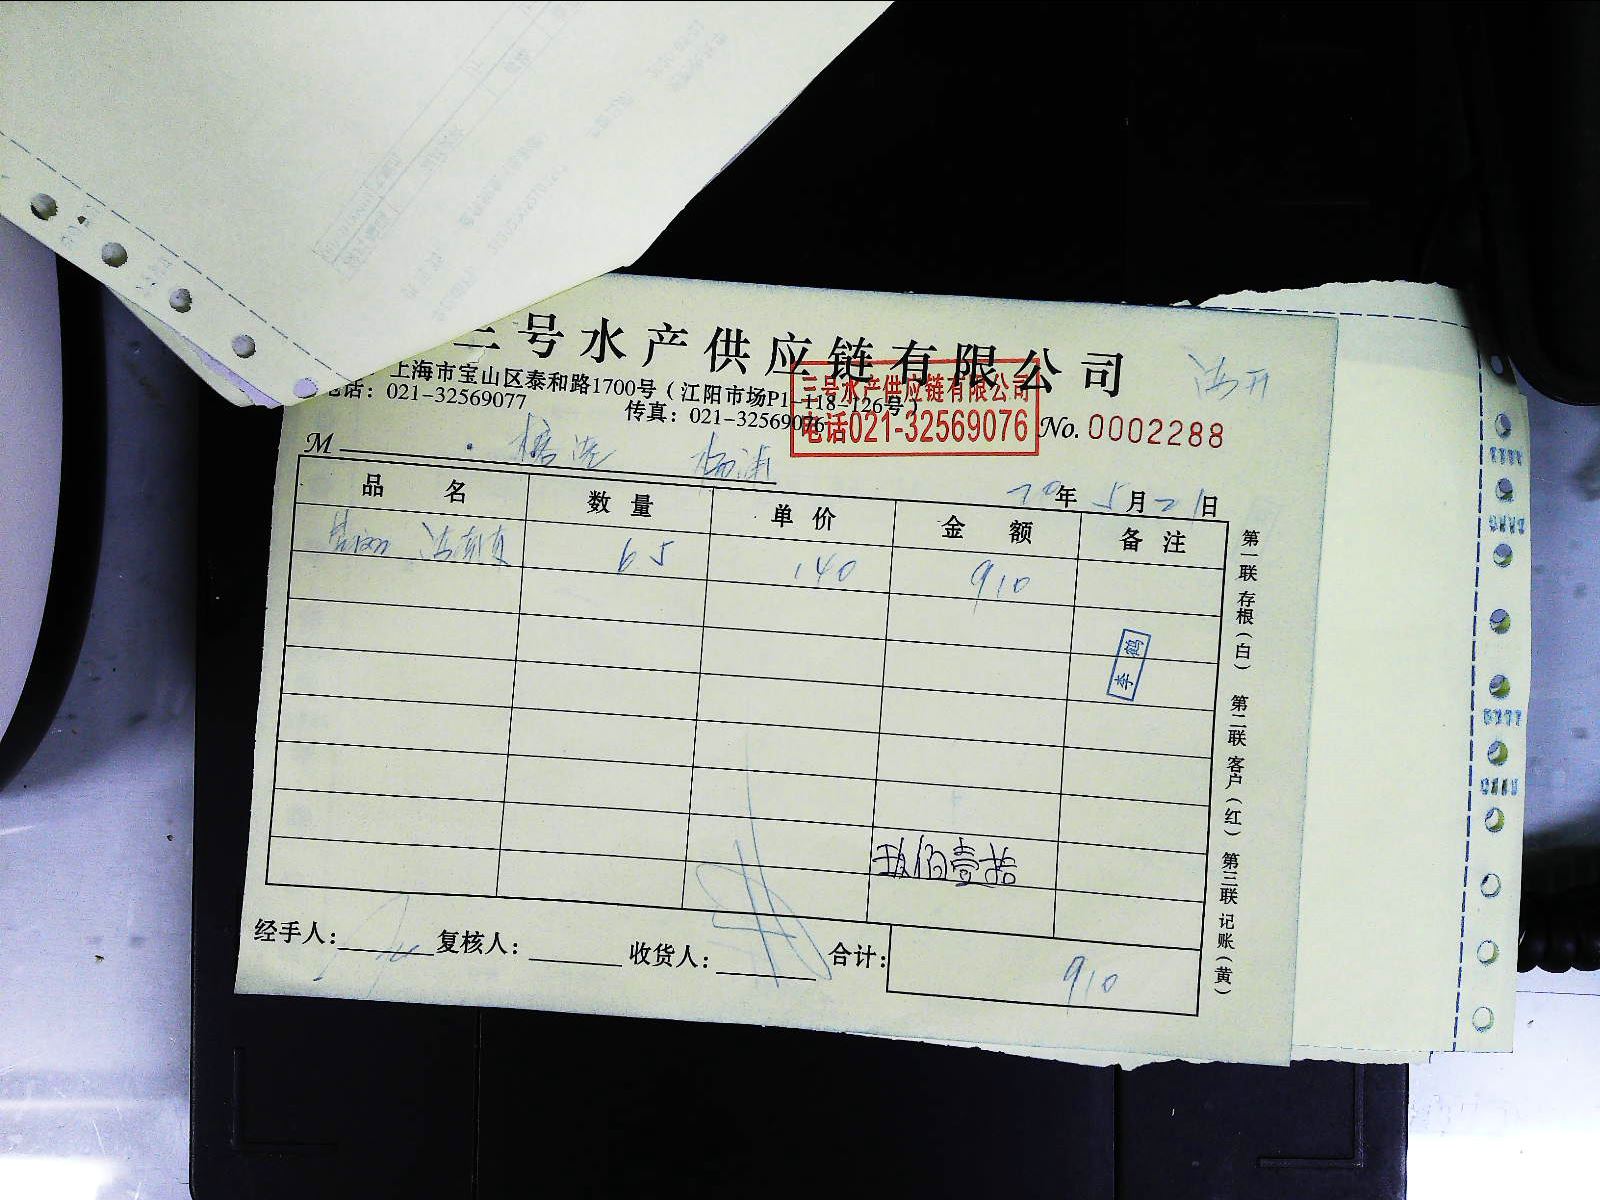 三号水产供应链有限公司
上海市宝山区泰和路1700号（江阳市场P1-118-126号）
电话：021-32569077
传真：021-32569076
三号水产供应链有限公司
电话021-32569076
No. 0002288
M
20年5月21日
品名 数量 单价 金额 备注
65 140 910
李鹤
玖佰壹拾
经手人： 复核人： 收货人： 合计： 910
第一联 存根（白） 第二联 客户（红） 第三联 记账（黄）